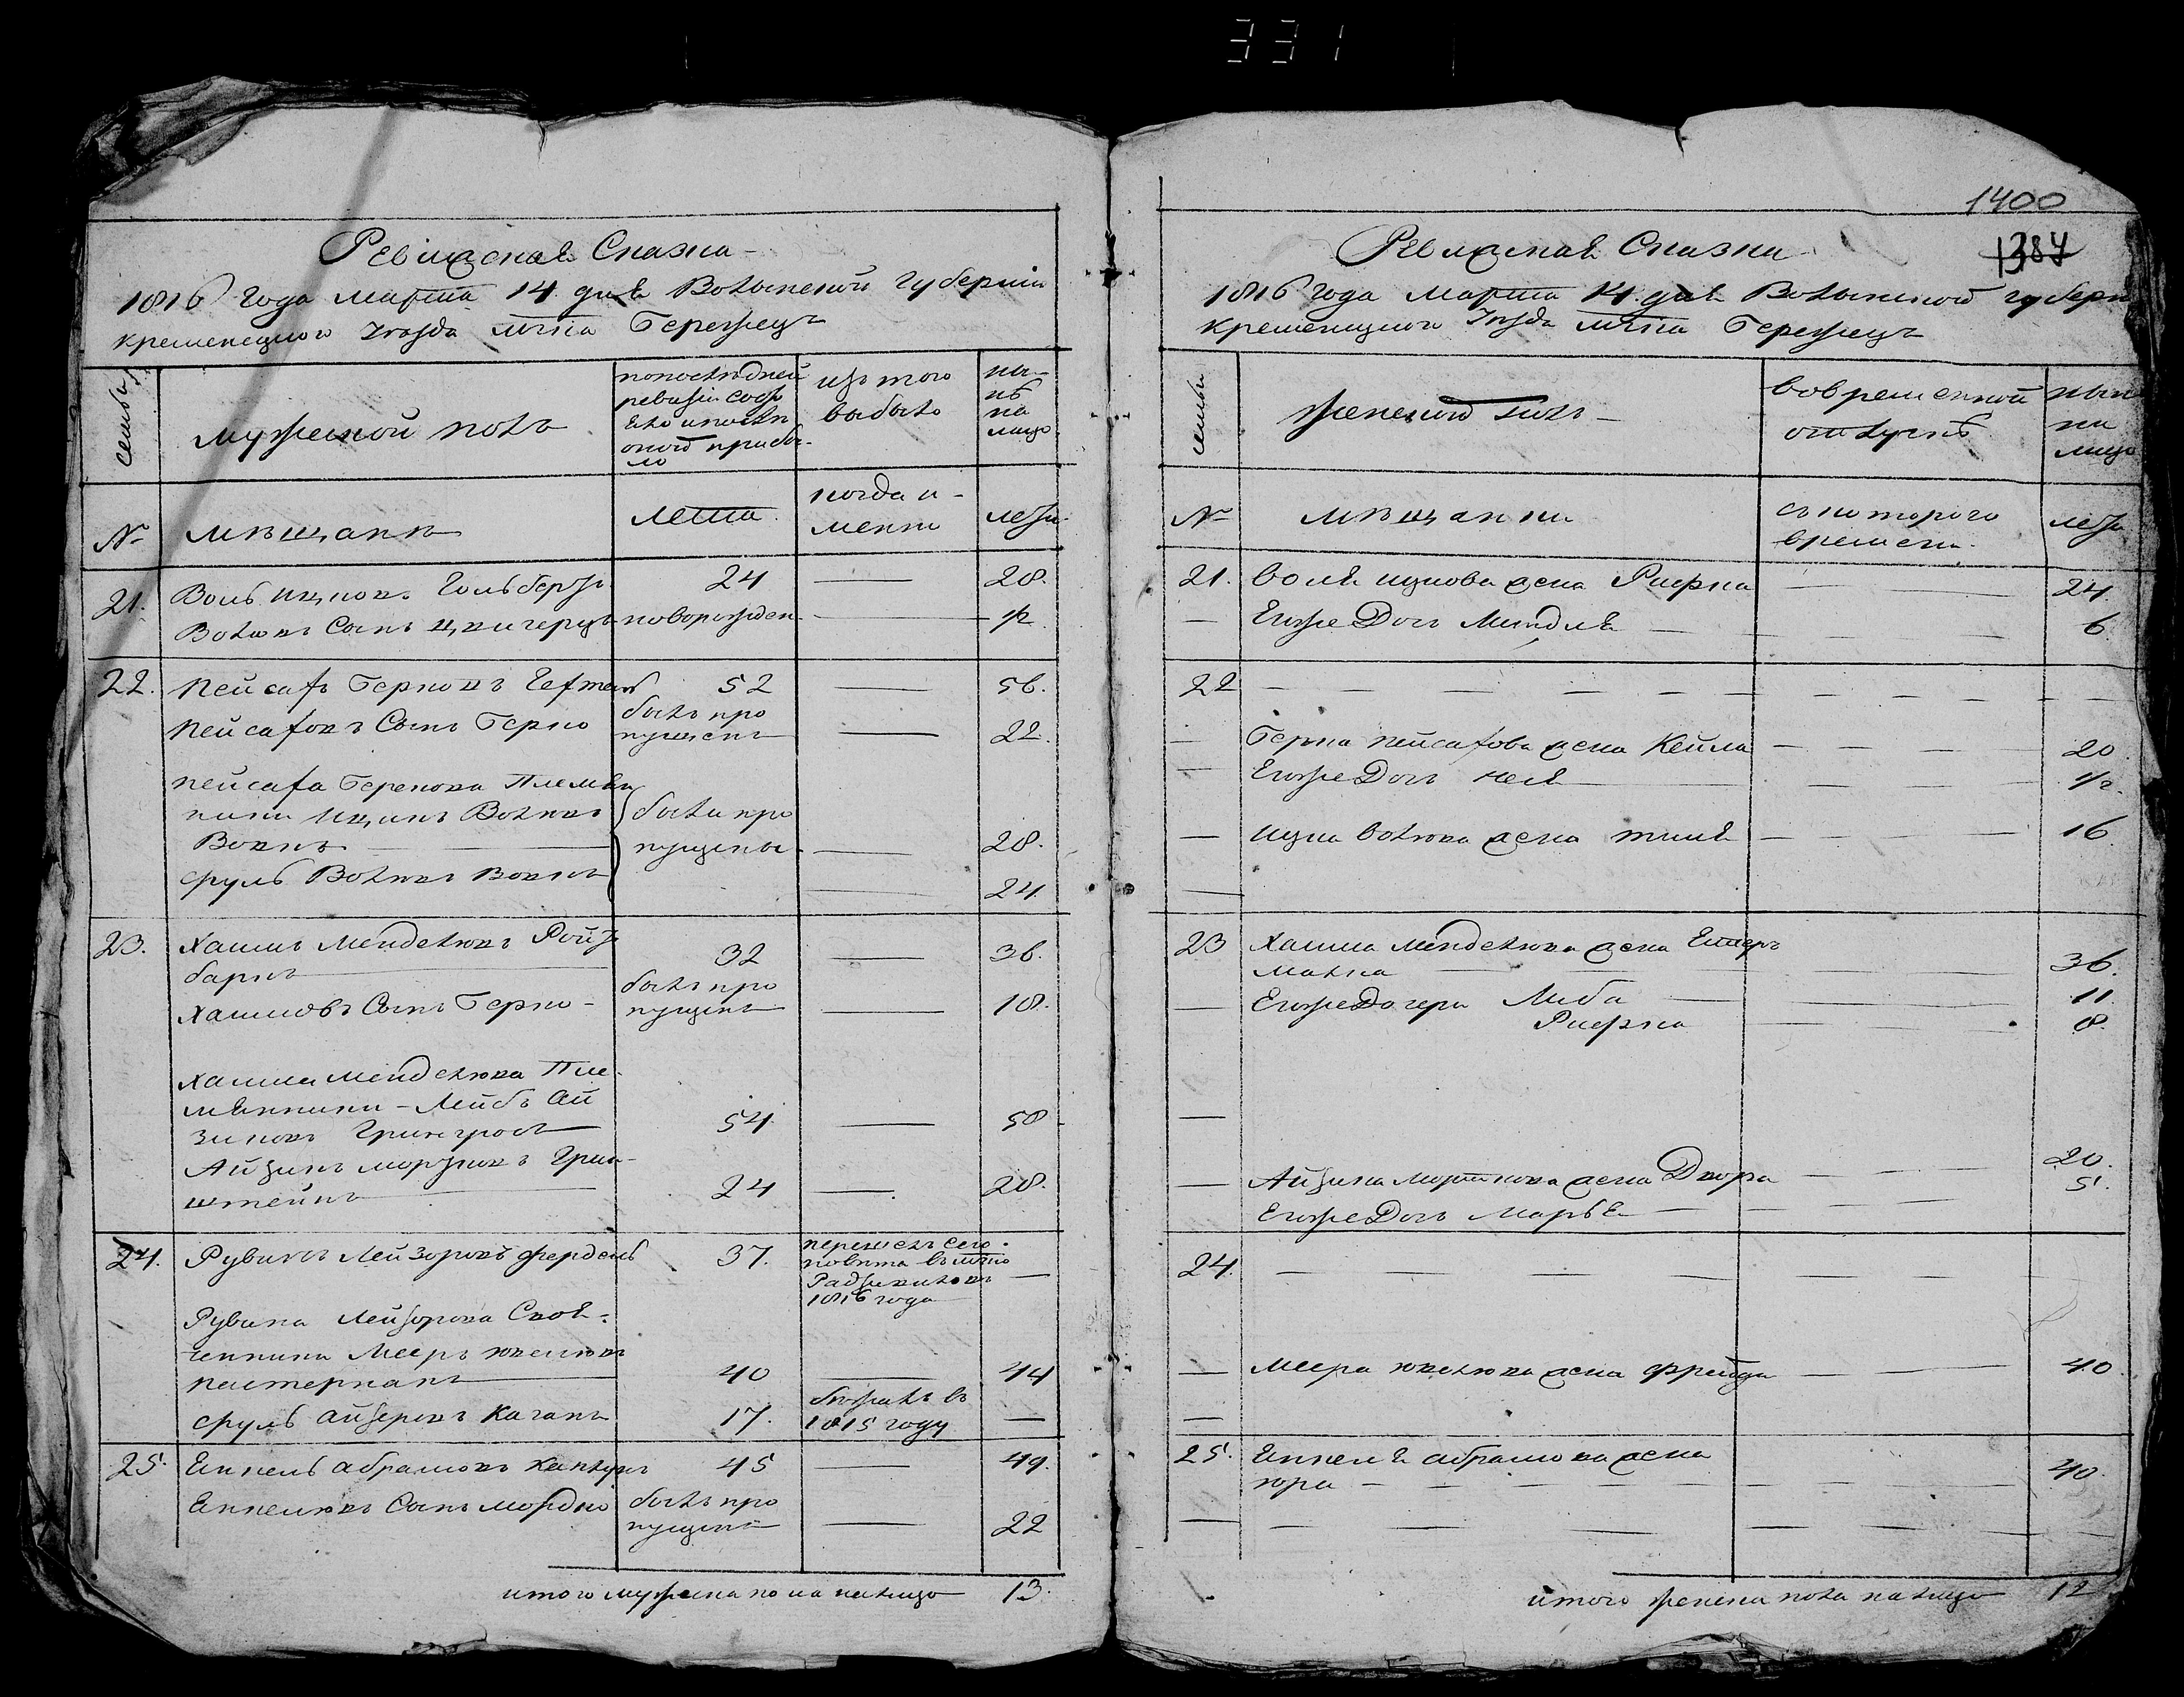 331
Ревизская Сказка
1816 года марта 14 дня Волынской губернии
кременецкого уезда мѣст: Бережецъ
семьи
мужеской полъ
попоследней
ревизіи сост
ело и посли
оной прибы-
ло
изъ того
выбыло
ны-
нѣ
на
лицо
№
мѣщанъ
лета
когда и-
менно
лета
21. Воль ицковъ Гольберзъ 24 — 28.
Волковъ Сынъ новорожден — ½
22. Пейсахъ Берковъ 52 — 56.
Пейсаховъ Сынъ Берко былъ про
пущенъ — 22.
Пейсаха Беркова Племян
ники Ицикъ Волковъ были про
Вовкъ — пущены — 28.
Сруль Волковъ Вовкъ — 24
23. Хаимъ Менделювъ Ройз
баркъ — 32 — 36.
Хаимовъ Сынъ Берко - былъ про
пущенъ — 18.
Хаима Менделюва Пле
мянники - Лейбъ Ай
зиковъ Грингросъ 54 — 58
Айзикъ Моржковъ Грин-
штейнъ 24 — 28.
24. Рувинъ Лейзоровъ Фердель 37. перешелъ сего
повита въ мѣст
Радзивиловъ —
1816 года
Рувина Лейзорова Своя-
ченники Мееръ Ювелювъ
пастернакъ 40 — 44
Сруль Айзеровъ Каганъ 17. бежалъ въ
1815 году —
25. Еикель Абрамовъ 45 — 49.
Еикелювъ Сынъ Мордко былъ про
пущенъ — 22
итого мужеска пола налицо 13.
1400
1387
Ревизская Сказка
1816 года Марта 14 дня Волынской губерн
Кременецкого уезда мѣст: Бережецъ
семьи
женской полъ
вовременной
отлучкѣ
нын
на
лицо
№
мѣщанки
съ которого
времени
лета
21. Воля ицкова жена Рифка — 24
Егоже Дочь Миндля — 6.
22 — — — —
— Берка Пейсахова жена Кейла — 20
— Егоже Дочь Неся — ½.
— ицка Волкова жена — 16.
—
23 Хаима Менделюва жена Естеръ
Малка — 36.
— Егоже Дочери Либа — 11
Рифка — 8.
—
— Айзика Морткова жена Двора — 20.
Егоже Дочь Марья — 5.
24. — — — —
— Меера Ювелюва жена Фрейда — 40
—
25. Еикеля Абрамова жена
юра — 40.
— — — —
итого женска пола налицо 12